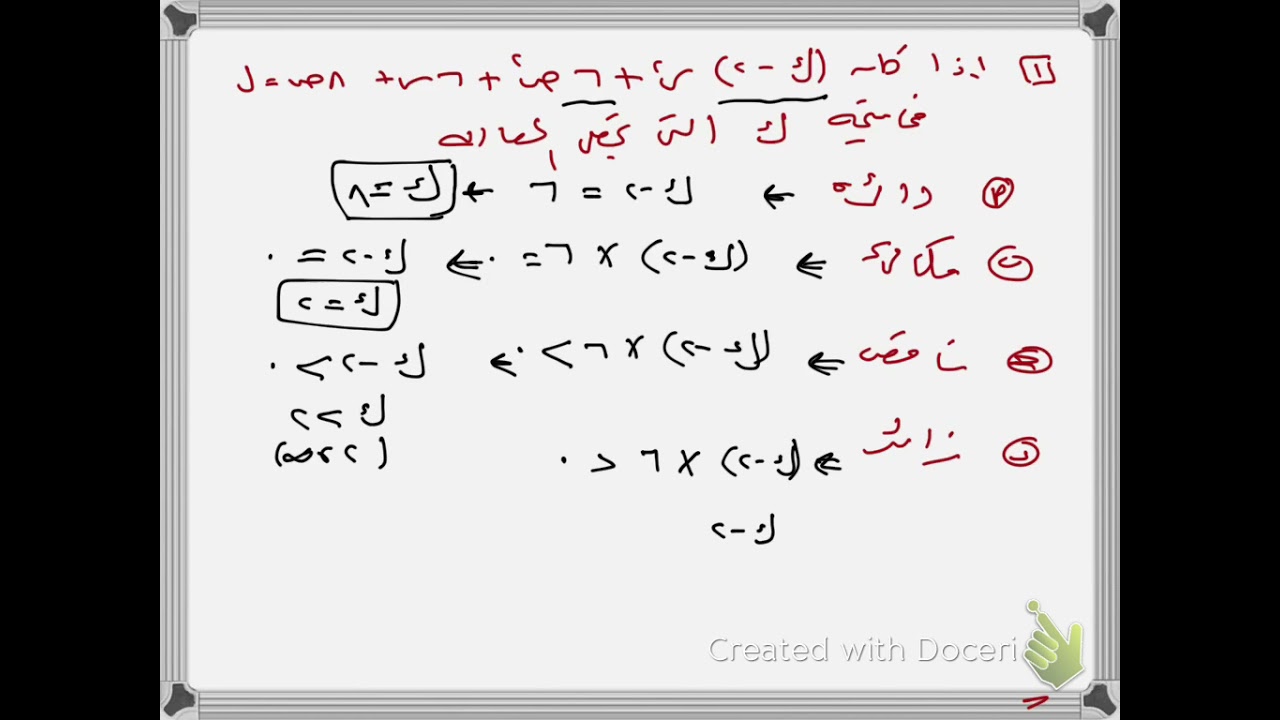 ١ اذا كان (ك - ٢) س٢ + ٦ ص٢ + ٦ س + ٨ ص = ل
فما قيمة ك التي تجعل المعادلة
P دائرة ← ك - ٢ = ٦ ← ك = ٨
ب مكافئ ← (ك - ٢) × ٦ = ٠ ← ك - ٢ = ٠
ك = ٢
ج ناقص ← (ك - ٢) × ٦ > ٠ ← ك - ٢ > ٠
ك > ٢
(٢ ، ∞)
د زائد ← (ك - ٢) × ٦ < ٠
ك - ٢
Created with Doceri